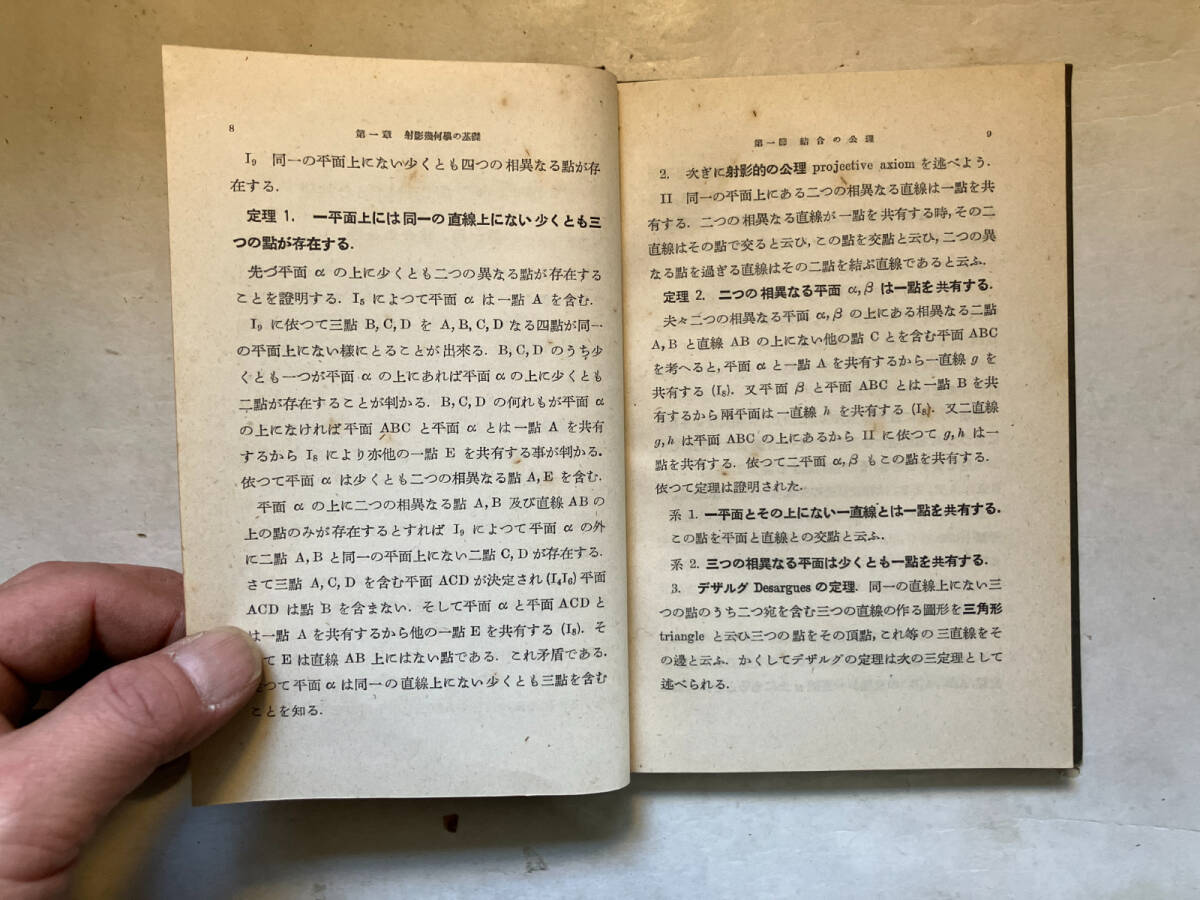 8
第一章 射影幾何學の基礎
I₉ 同一の平面上にない少くとも四つの相異なる點が存
在する.
定理 1. 一平面上には同一の直線上にない少くとも三
つの點が存在する.
先づ平面 α の上に少くとも二つの異なる點が存在する
ことを證明する. I₅ によつて平面 α は一點 A を含む.
I₉ に依つて三點 B, C, D を A, B, C, D なる四點が同一
の平面上にない樣にとることが出來る. B, C, D のうち少
くとも一つが平面 α の上にあれば平面 α の上に少くとも
二點が存在することが判かる. B, C, D の何れもが平面 α
の上になければ平面 ABC と平面 α とは一點 A を共有
するから I₈ により亦他の一點 E を共有する事が判かる.
依つて平面 α は少くとも二つの相異なる點 A, E を含む.
平面 α の上に二つの相異なる點 A, B 及び直線 AB の
上の點のみが存在するとすれば I₉ によつて平面 α の外
に二點 A, B と同一の平面上にない二點 C, D が存在する.
さて三點 A, C, D を含む平面 ACD が決定され (I₄I₆) 平面
ACD は點 B を含まない. そして平面 α と平面 ACD と
は一點 A を共有するから他の一點 E を共有する (I₈). そ
て E は直線 AB 上にはない點である. これ矛盾である.
つて平面 α は同一の直線上にない少くとも三點を含む
ことを知る.
第一節 結合の公理
9
2. 次ぎに射影的の公理 projective axiom を述べよう.
II 同一の平面上にある二つの相異なる直線は一點を共
有する. 二つの相異なる直線が一點を共有する時, その二
直線はその點で交ると云ひ, この點を交點と云ひ, 二つの異
なる點を過ぎる直線はその二點を結ぶ直線であると云ふ.
定理 2. 二つの相異なる平面 α, β は一點を共有する.
夫々二つの相異なる平面 α, β の上にある相異なる二點
A, B と直線 AB の上にない他の點 C とを含む平面 ABC
を考へると, 平面 α と一點 A を共有するから一直線 g を
共有する (I₈). 又平面 β と平面 ABC とは一點 B を共
有するから兩平面は一直線 h を共有する (I₈). 又二直線
g, h は平面 ABC の上にあるから II に依つて g, h は一
點を共有する. 依つて二平面 α, β もこの點を共有する.
依つて定理は證明された.
系 1. 一平面とその上にない一直線とは一點を共有する.
この點を平面と直線との交點と云ふ.
系 2. 三つの相異なる平面は少くとも一點を共有する.
3. デザルグ Desargues の定理. 同一の直線上にない三
つの點のうち二つ宛を含む三つの直線の作る圖形を三角形
triangle と云ひ三つの點をその頂點, これ等の三直線をそ
の邊と云ふ. かくしてデザルグの定理は次の三定理として
述べられる.